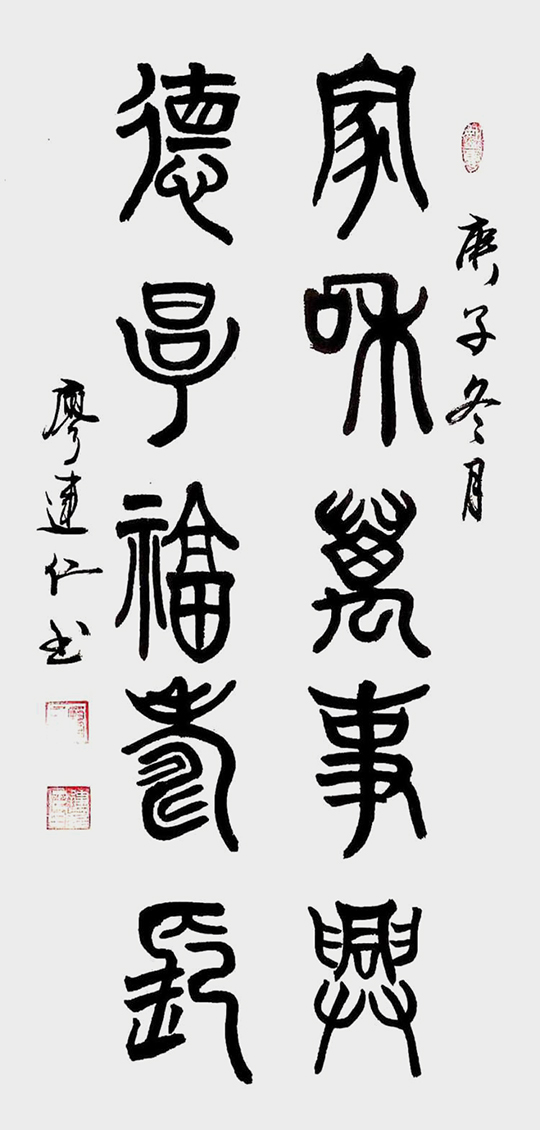 庚子冬月
家和萬事興
德厚福壽長
廖連仁书